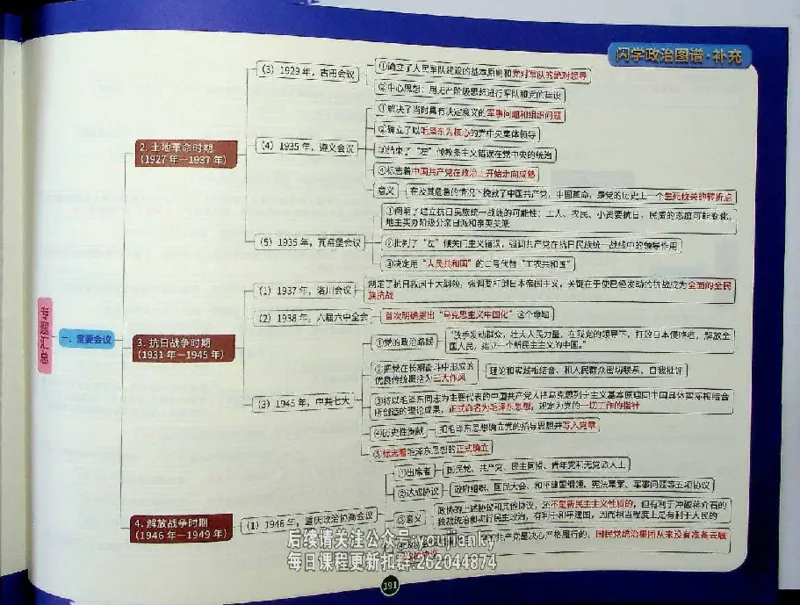 闪学政治图谱·补充
(3) 1929年，古田会议
①确立了人民军队建设的基本原则和党对军队的绝对领导
②中心思想：用无产阶级思想进行军队和党的建设
2. 土地革命时期
(1927年—1937年)
(4) 1935年，遵义会议
①解决了当时具有决定意义的军事问题和组织问题
②确立了以毛泽东为核心的党中央集体领导
③结束了“左”倾教条主义错误在党中央的统治
④标志着中国共产党在政治上开始走向成熟
意义
在极其危急的情况下挽救了中国共产党，中国革命，是党的历史上一个生死攸关的转折点
(5) 1935年，瓦窑堡会议
①阐明了建立抗日民族统一战线的可能性：工人、农民、小资要抗日，民资的态度可能变化，
地主买办阶级分亲日派和亲英美派
②批判了“左”倾关门主义错误，强调共产党在抗日民族统一战线中的领导作用
③决定用“人民共和国”的口号代替“工农共和国”
专题汇总
一、重要会议
3. 抗日战争时期
(1931年—1945年)
(1) 1937年，洛川会议
制定了抗日救国十大纲领，强调要打倒日本帝国主义，关键在于使已经发动的抗战成为全面的全民
族抗战
(2) 1938年，六届六中全会
首次明确提出“马克思主义中国化”这个命题
(3) 1945年，中共七大
①党的政治路线
“放手发动群众，壮大人民力量，在我党的领导下，打败日本侵略者，解放全
国人民，建立一个新民主主义的中国。”
②把党在长期奋斗中形成的
优良传统概括为三大作风
理论和实践相结合、和人民群众密切联系、自我批评
③将以毛泽东同志为主要代表的中国共产党人把马克思列宁主义基本原理同中国具体实际相结合
所创造的理论成果，正式命名为毛泽东思想，规定为党的一切工作的指针
④历史性贡献
把毛泽东思想确立党的指导思想并写入党章
⑤标志着毛泽东思想的正式确立
4. 解放战争时期
(1946年—1949年)
(1) 1946年，重庆政治协商会议
①出席者
国民党、共产党、民主同盟、青年党和无党派人士
②达成协议
政府组织、国民大会、和平建国纲领、宪法草案、军事问题等五项协议
③意义
政协的上述协议和其他协议，还不是新民主主义性质的，但有利于冲破蒋介石的
独裁统治和实行民主政治，有利于和平建国，因而相当程度上是有利于人民的
共产党是决心严格履行的，国民党统治集团从来没有准备去履
后续请关注公众号:youjianky
每日课程更新扣群:262044874
191